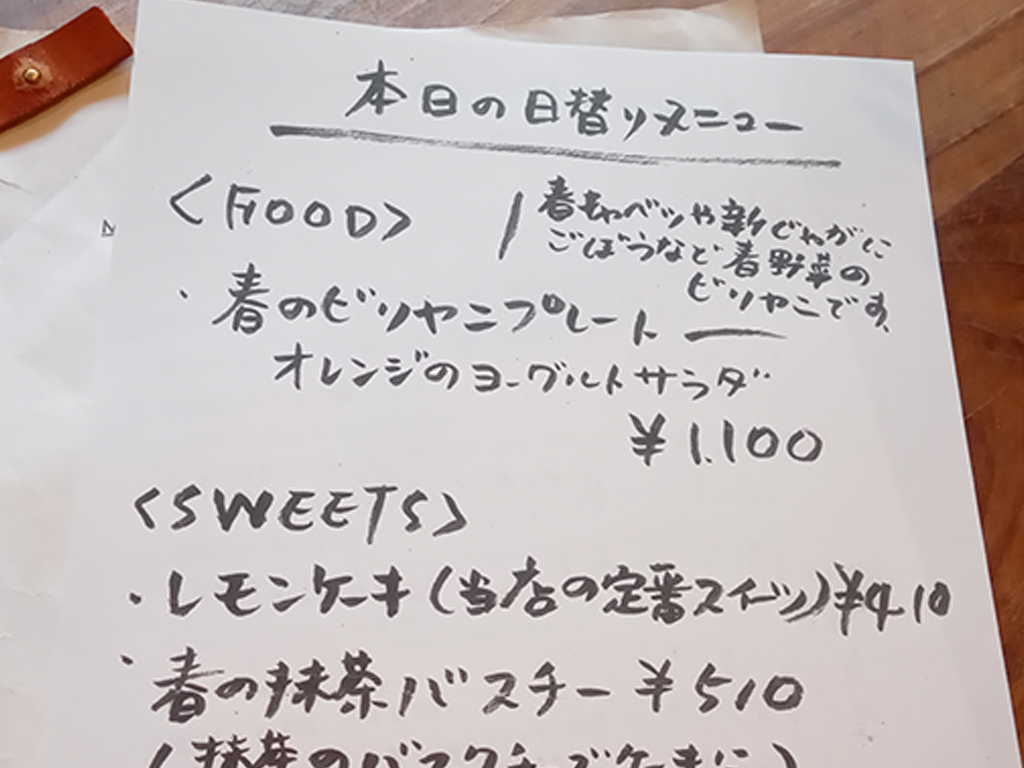 本日の日替りメニュー
<FOOD>
春キャベツや新じゃがに
ごぼうなど春野菜の
ビリヤニです。
・春のビリヤニプレート
オレンジのヨーグルトサラダ
¥1.100
<SWEETS>
・レモンケーキ(当店の定番スイーツ)¥410
・春の抹茶バスチー ¥510
(抹茶のバスクチーズケーキに)